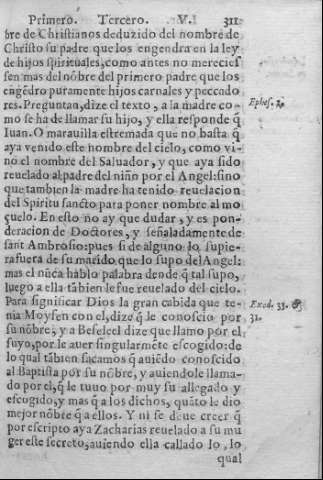 Primero. Tercero. V. 311
bre de Christianos deduzido del nombre de
Christo su padre que los engendra en la ley
de hijos spirituales, como antes no merecies
sen mas del nõbre del primero padre que los
engẽdro puramente hijos carnales y peccado
res. Preguntan, dize el texto, a la madre co-
mo se ha de llamar su hijo, y ella responde q̃
Iuan. O marauilla estremada que no basta q̃
aya venido este nombre del cielo, como vi-
no el nombre del Saluador, y que aya sido
reuelado al padre del niño por el Angel: sino
que tambien la madre ha tenido reuelacion
del Spiritu sancto para poner nombre al mo
çuelo. En esto no ay que dudar, y es pon-
deracion de Doctores, y señaladamente de
sant Ambrosio: pues si de alguno lo supie-
ra fuera de su marido que lo supo del Angel:
mas el nũca hablo palabra dende q̃ tal supo,
luego a ella tãbien le fue reuelado del cielo.
Para significar Dios la gran cabida que te-
nia Moysen con el, dize q̃ le conoscio por
su nõbre, y a Beseleel dize que llamo por el
suyo, por le auer singularmẽte escogido: de
lo qual tãbien sacamos q̃ auiẽdo conoscido
al Baptista por su nõbre, y auiendole llama-
do por el, q̃ le tuuo por muy su allegado y
escogido, y mas q̃ a los dichos, quãto le dio
mejor nõbre q̃ a ellos. Y ni se deue creer q̃
por escripto aya Zacharias reuelado a su mu
ger este secreto, auiendo ella callado lo, lo
qual
Ephes. 2.
Exod. 33. &
31.